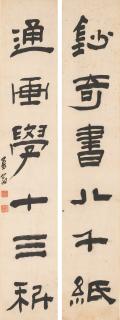 鈔奇書八千紙
通画學十三科